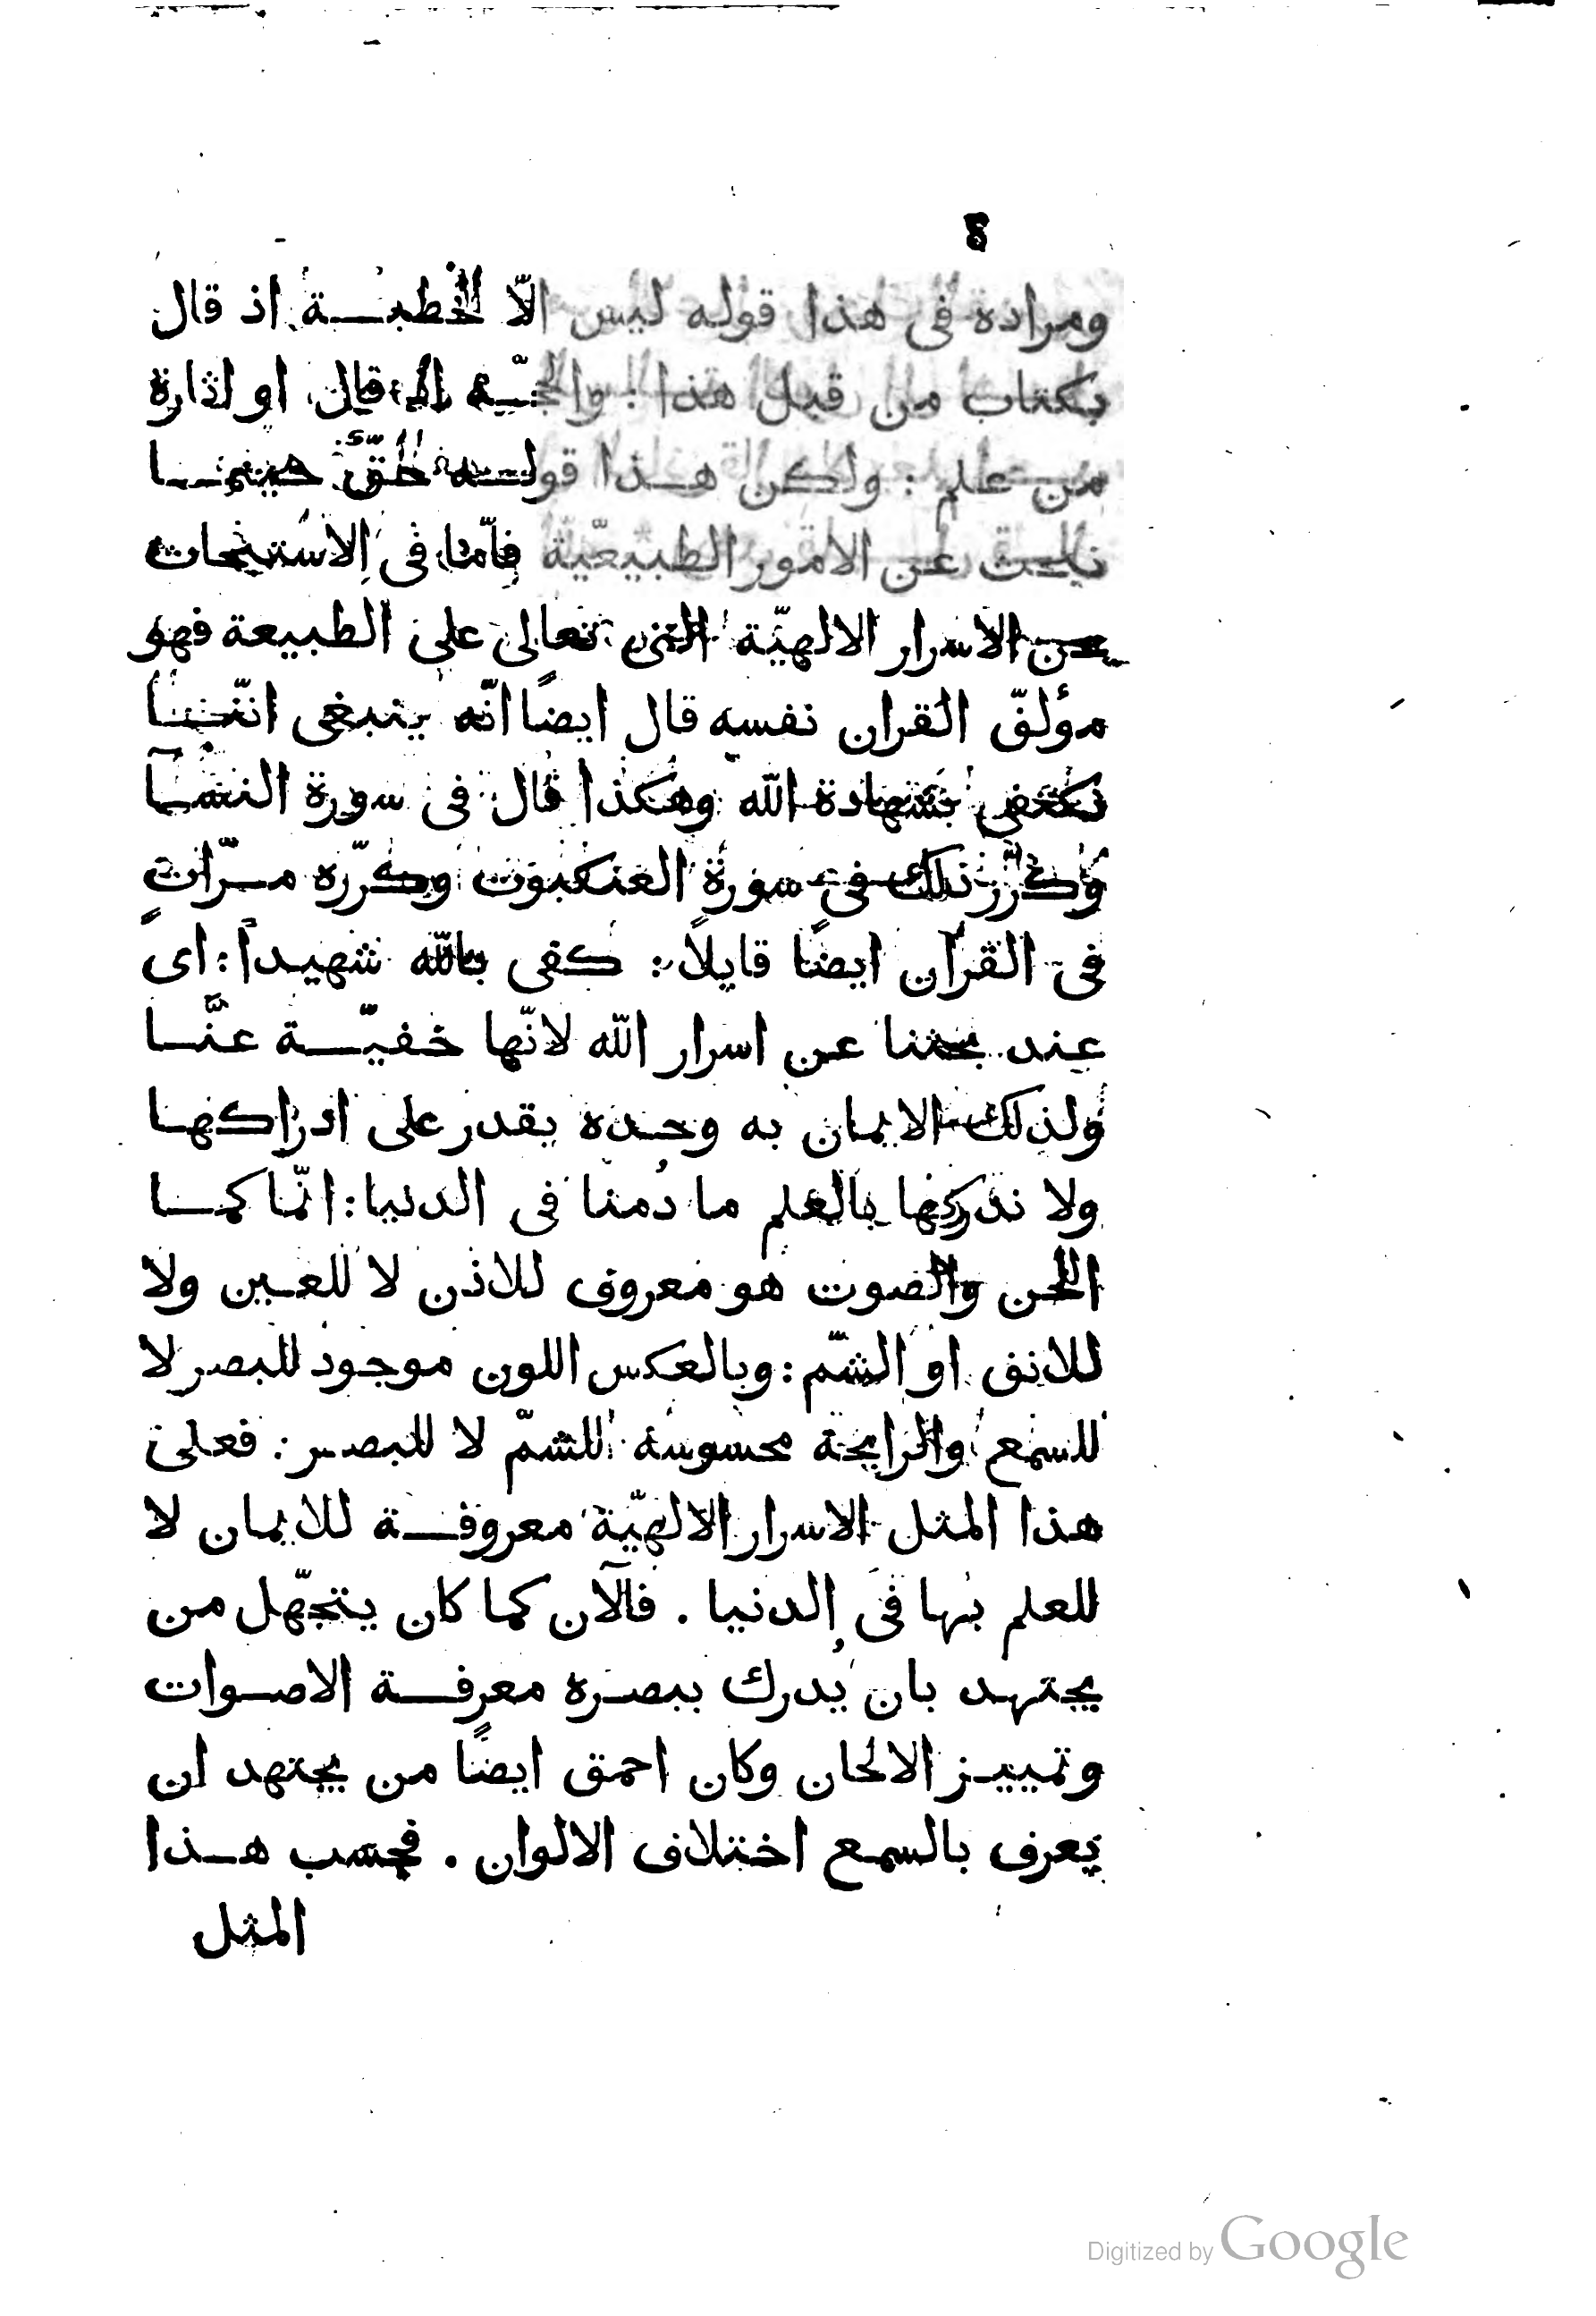 8
ومراده فى هذا قوله ليس الّا الخطبة اذ قال
بكتاب من قبل هذا : قال او اثارة
من علم : ولكن هذا قوله حقّ حينما
نبحث عن الامور الطبيعيّة فامّا فى الاستبحاث
عن الاسرار الالهيّة التى تعالى على الطبيعة فهو
مؤلّف القران نفسه قال ايضًا انّه ينبغى انّنا
نكتفى بشهادة الله وهكذا قال فى سورة النسآ
وكرّر ذلك فى سورة العنكبوت وكرّره مرّاتٍ
فى القرآن ايضًا قايلًا : كفى بالله شهيدًا : اى
عند بحثنا عن اسرار الله لانّها خفيّة عنّا
ولذلك الايمان به وحده يقدر على ادراكها
ولا ندركها بالعلم ما دُمنا فى الدنيا : انّما كما
اللحن والصوت هو معروف للاذن لا للعين ولا
للانف او الشمّ : وبالعكس اللون موجود للبصر لا
للسمع والرايحة محسوسة للشمّ لا للبصر : فعلى
هذا المثل الاسرار الالهيّة معروفة للايمان لا
للعلم بها فى الدنيا . فالآن كما كان يتجهّل من
يجتهد بان يُدرك ببصره معرفة الاصوات
وتمييز الالحان وكان احمق ايضًا من يجتهد ان
يعرف بالسمع اختلاف الالوان . فحسب هذا
المثل
Digitized by Google